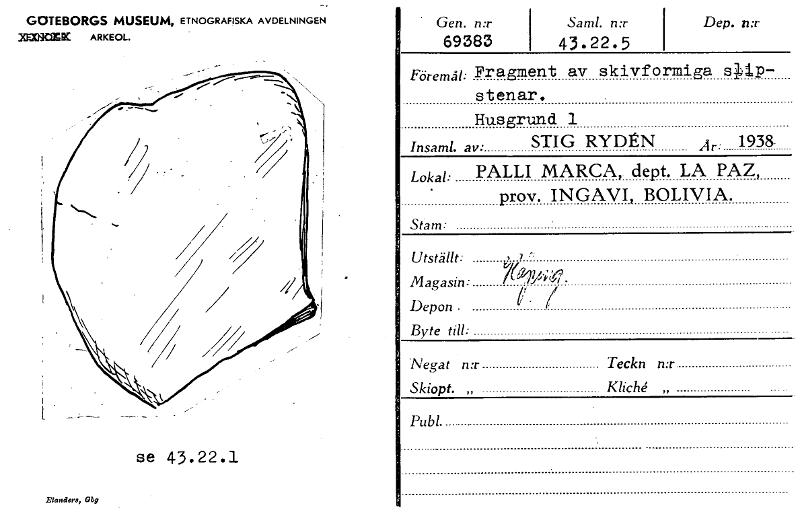 GÖTEBORGS MUSEUM, ETNOGRAFISKA AVDELNINGEN
ARKEOL.
se 43.22.1
Elanders, Gbg
Gen. n:r
69383
Saml. n:r
43.22.5
Dep. n:r
Föremål: Fragment av skivformiga slip-
stenar.
Husgrund 1
Insaml. av: STIG RYDÉN År: 1938
Lokal: PALLI MARCA, dept. LA PAZ,
prov. INGAVI, BOLIVIA.
Stam:
Utställt:
Magasin:
Depon.
Byte till:
Negat n:r Teckn n:r
Skiopt. „ Kliché „
Publ.